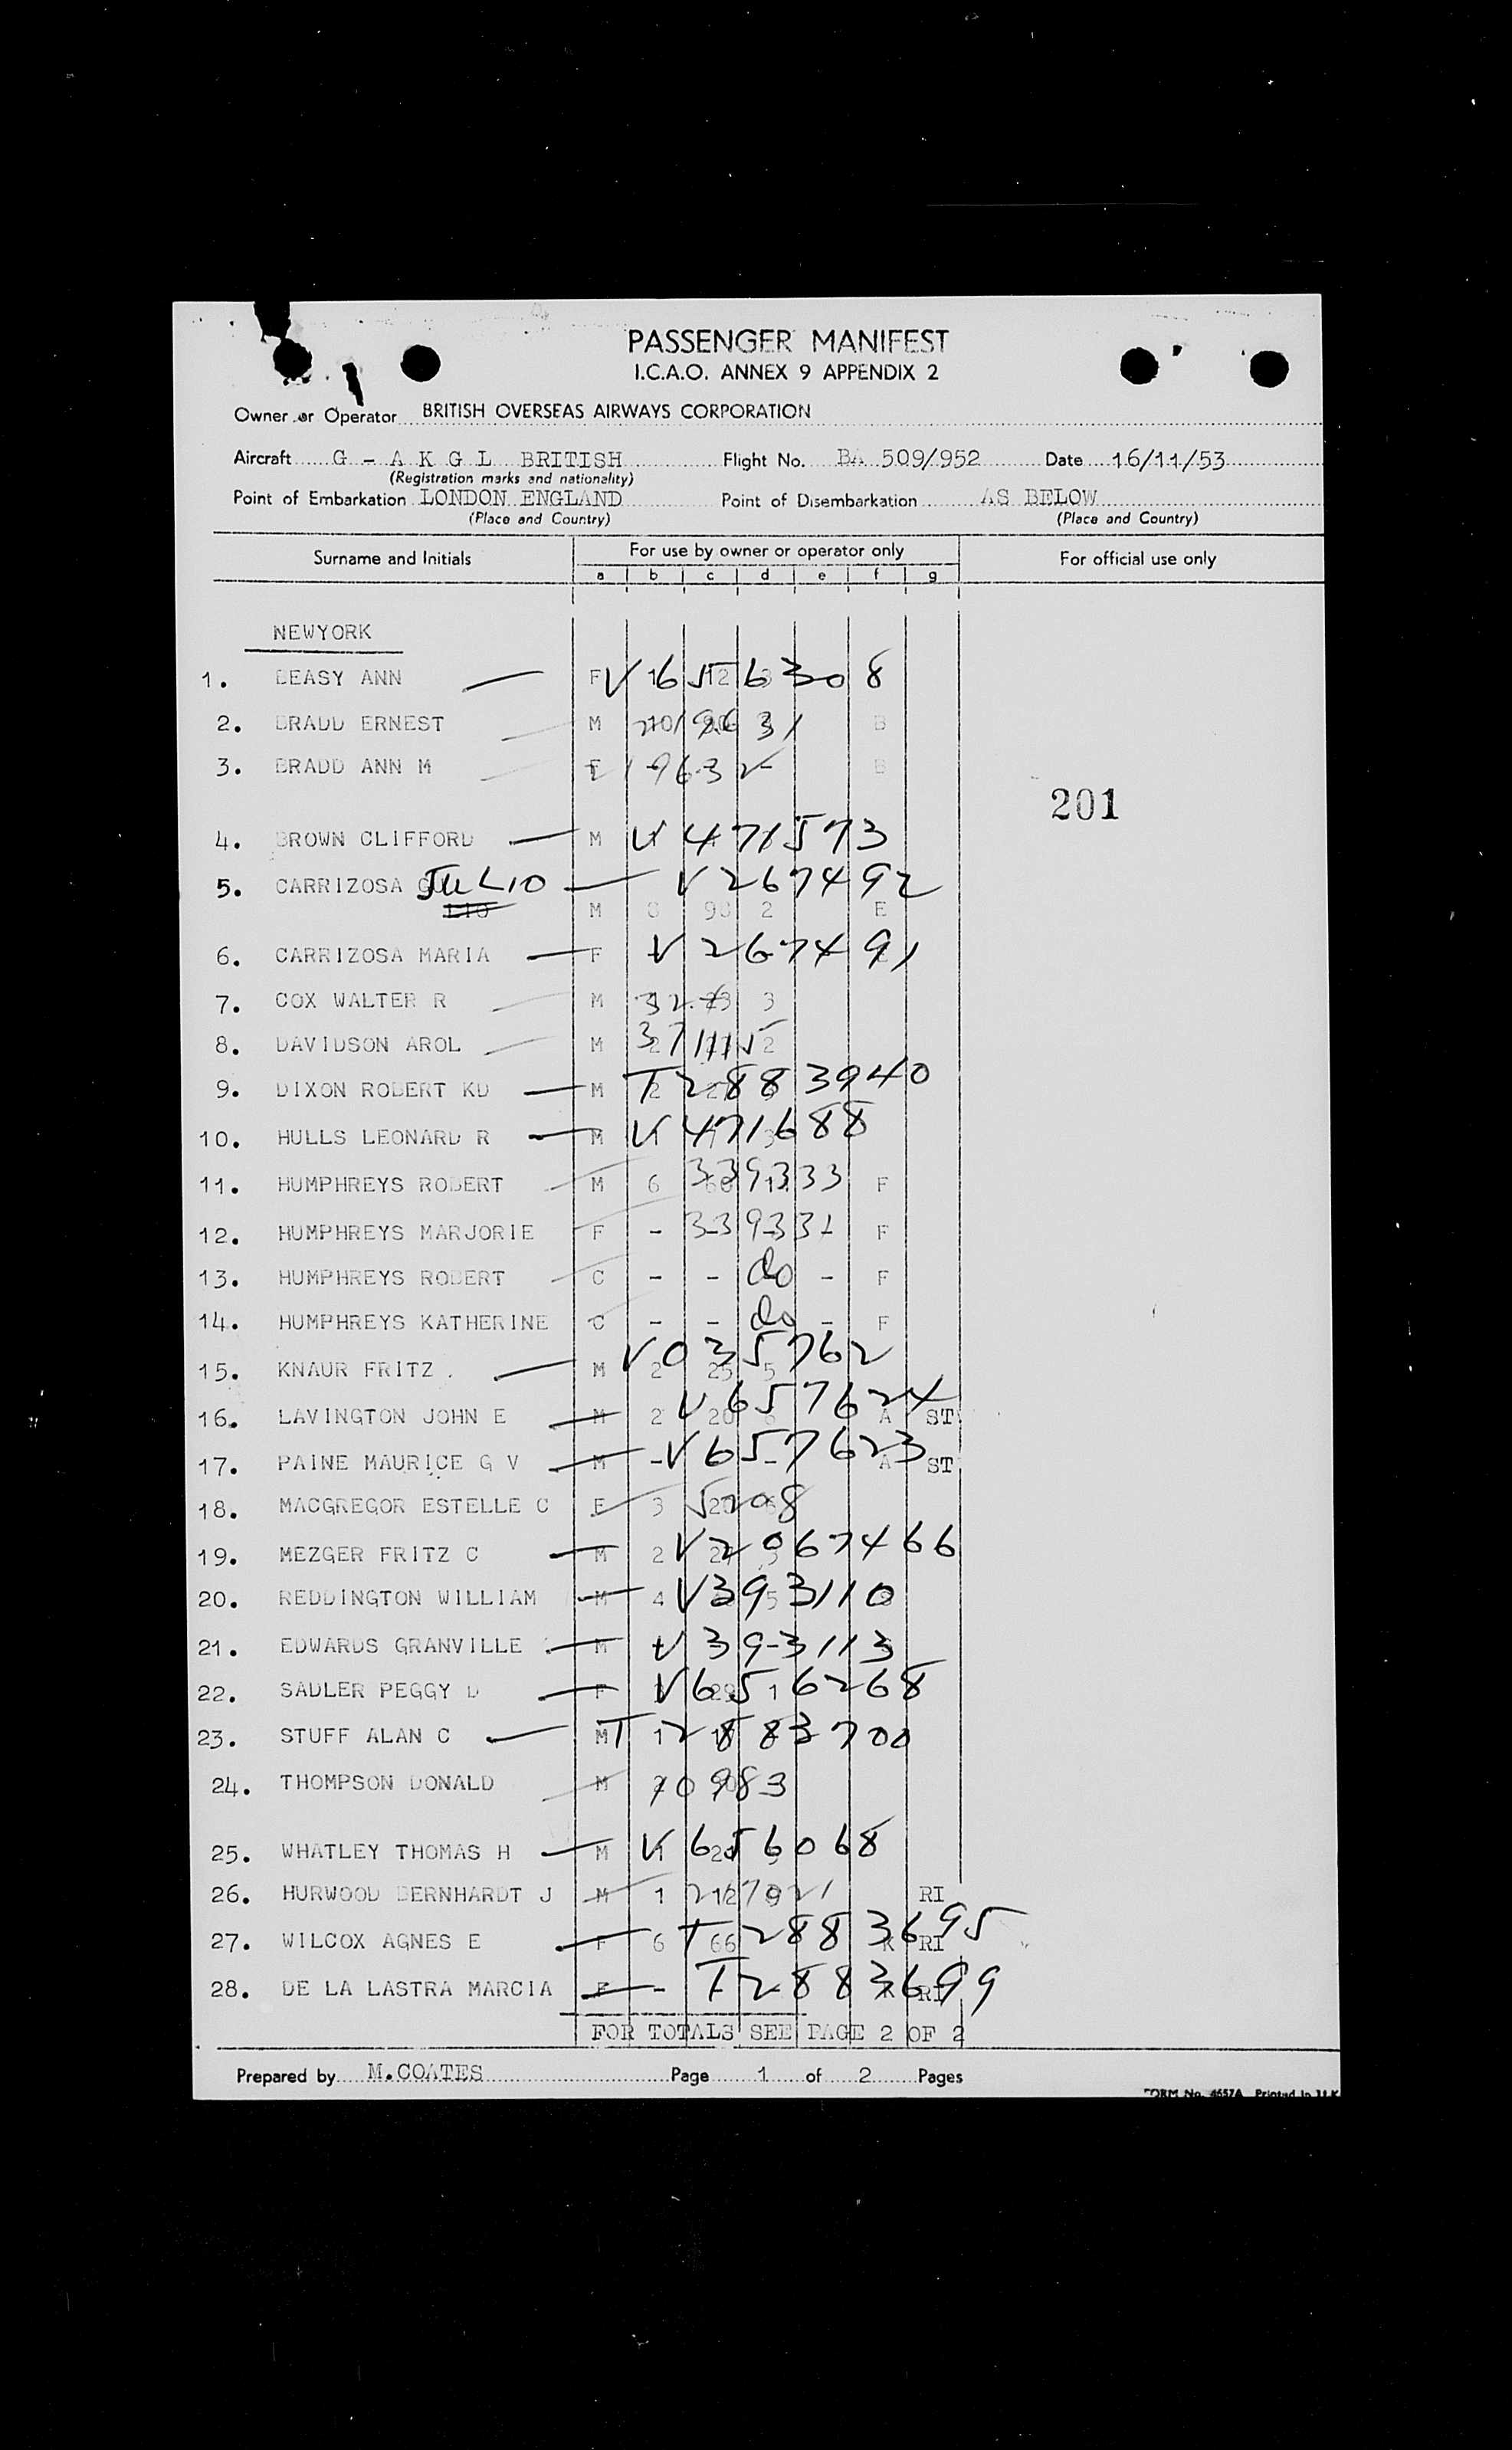 PASSENGER MANIFEST
I.C.A.O. ANNEX 9 APPENDIX 2
Owner or Operator BRITISH OVERSEAS AIRWAYS CORPORATION
Aircraft G - A K G L BRITISH Flight No. BA 509/952 Date 16/11/53
(Registration marks and nationality)
Point of Embarkation LONDON ENGLAND Point of Disembarkation AS BELOW
(Place and Country) (Place and Country)
Surname and Initials For use by owner or operator only For official use only
a b c d e f g
NEWYORK
1. BEASY ANN F V 1656308
2. BRADD ERNEST M 219631 B
3. BRADD ANN M F 219632 B
201
4. BROWN CLIFFORD M V 471573
5. CARRIZOSA JULIO V 267492
M 8 98 2 E
6. CARRIZOSA MARIA F V 267491
7. COX WALTER R M 3
8. DAVIDSON AROL M 2
9. DIXON ROBERT KD M T 2883940
10. HULLS LEONARD R M V 471688
11. HUMPHREYS ROBERT M 6 66 1 339333 F
12. HUMPHREYS MARJORIE F - 339331 F
13. HUMPHREYS ROBERT C - - do - F
14. HUMPHREYS KATHERINE C - - do - F
15. KNAUR FRITZ . M 2 25 5 V 035762
16. LAVINGTON JOHN E M 2 20 6 V 657624 A ST
17. PAINE MAURICE G V M - - V 657623 A ST
18. MACGREGOR ESTELLE C F 3 5208
19. MEZGER FRITZ C M 2 V 2067466
20. REDDINGTON WILLIAM M 4 5 V 393110
21. EDWARDS GRANVILLE M V 393113
22. SADLER PEGGY D F 1 V 6516268
23. STUFF ALAN C M 1 T 2883700
24. THOMPSON DONALD M 70983
25. WHATLEY THOMAS H M V 656068
26. HURWOOD BERNHARDT J M 1 12 RI
27. WILCOX AGNES E F 6 66 T 2883695 K RI
28. DE LA LASTRA MARCIA F - T 2883699 K RI
FOR TOTALS SEE PAGE 2 OF 2
Prepared by M.COATES Page 1 of 2 Pages
FORM No. 4657A Printed in U.K